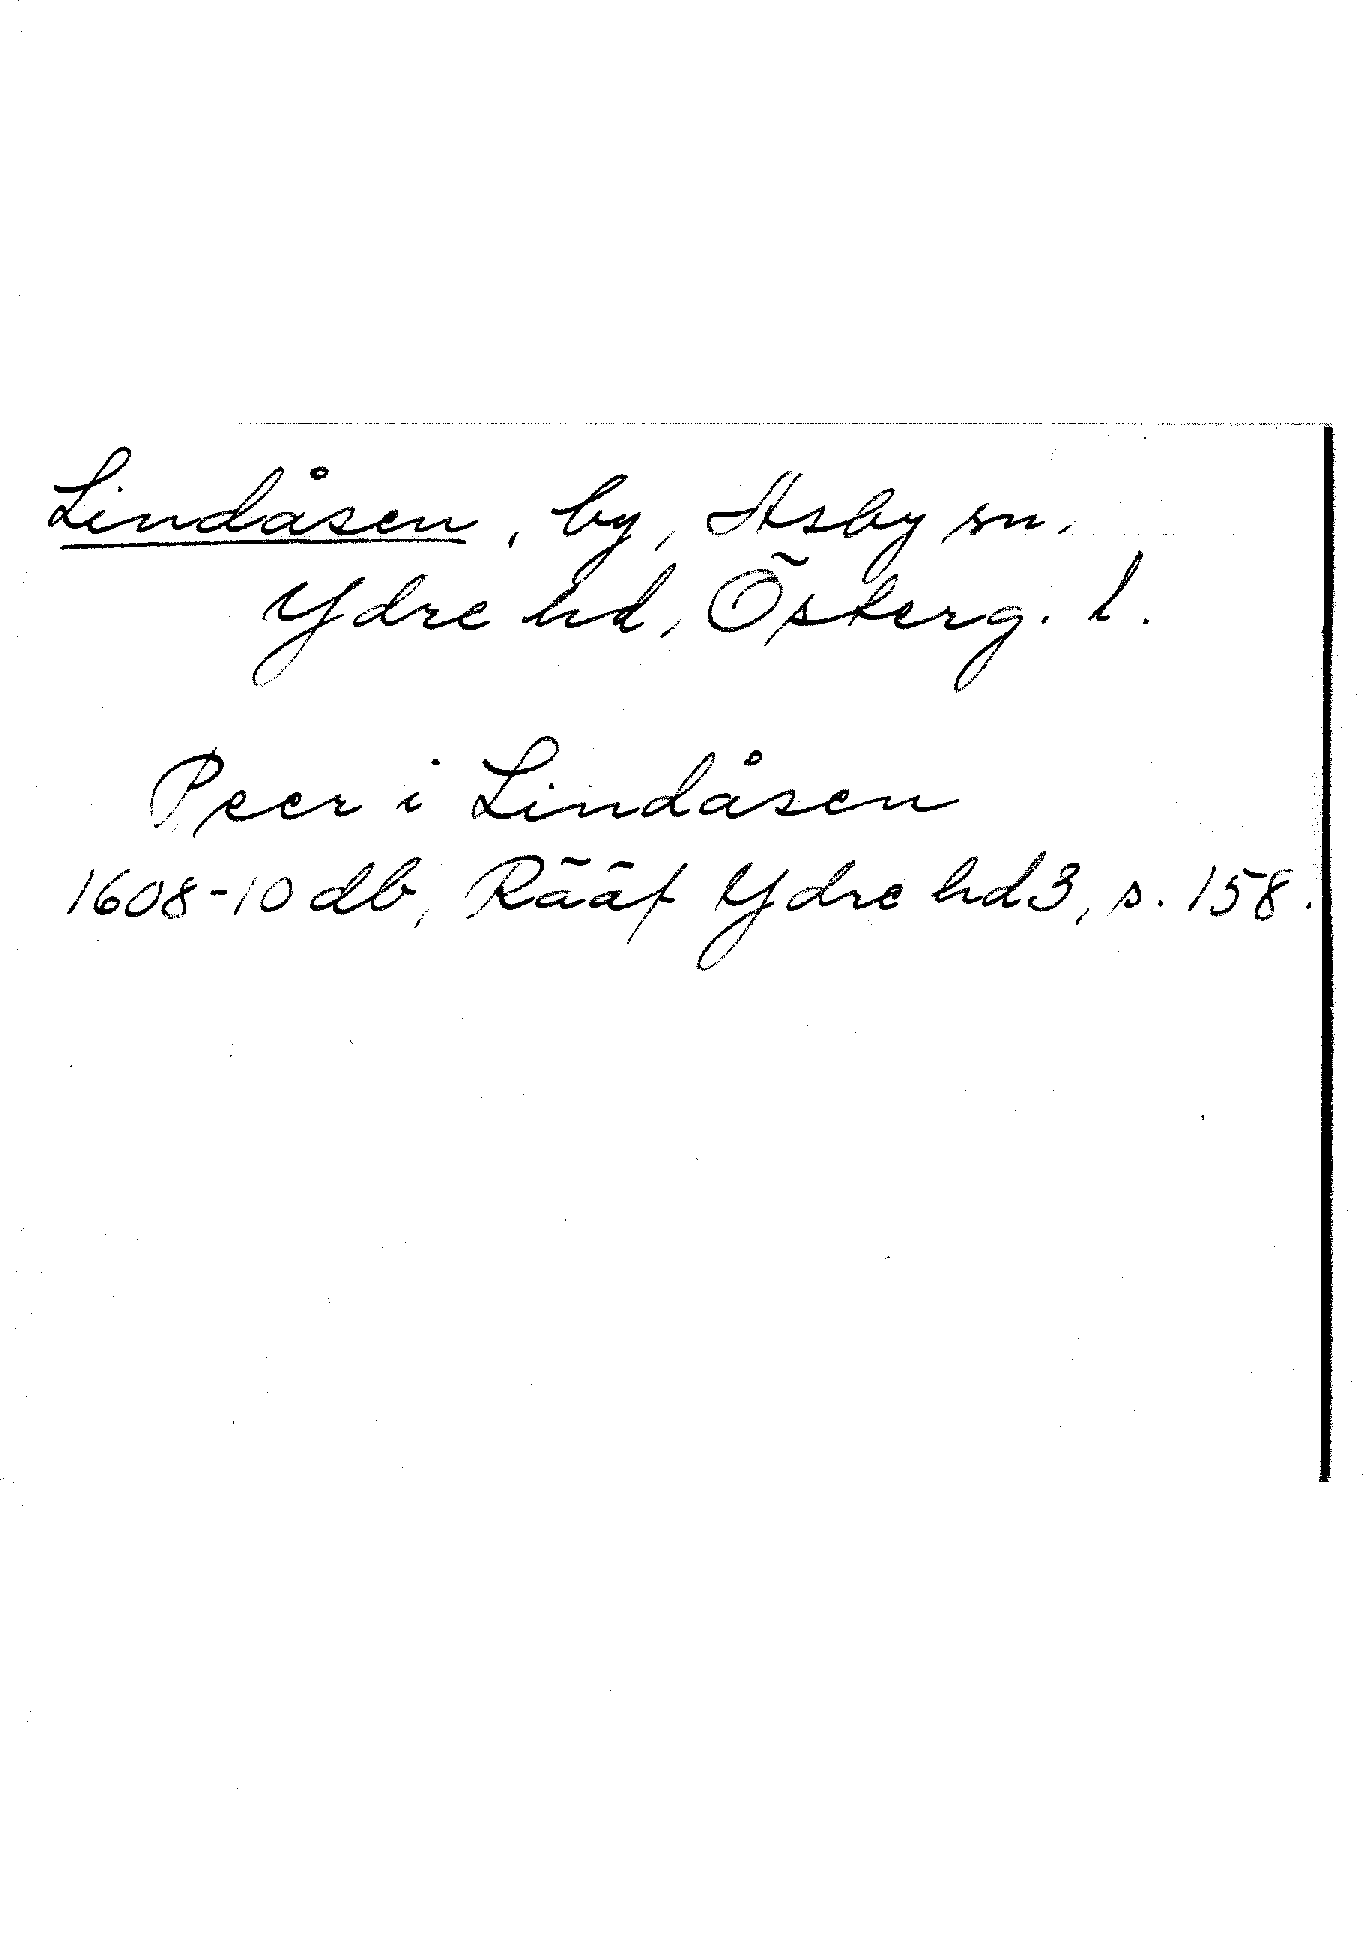 Lindåsen, by, Asby sn,
Ydre hd, Österg. l.
Peer i Lindåsen
1608-10 db, Rääf Ydre hd 3, s. 158.